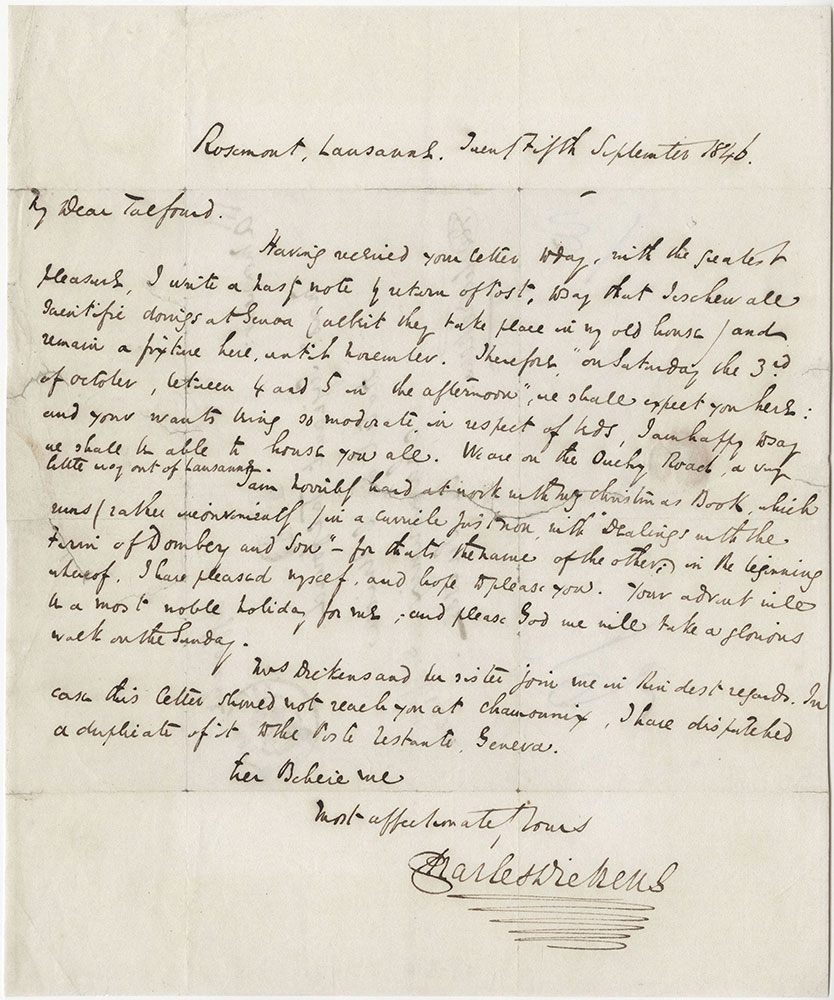 Rosemont, Lausanne. Twenty Fifth September 1846.
My Dear Talfourd.
Having received your letter today, with the greatest
pleasure, I write a hasty note by return of Post, to say that I eschew all
Scientific doings at Genoa (albeit they take place in my old house) and
remain a fixture here, until November. Therefore, "on Saturday the 3rd
of October, between 4 and 5 in the afternoon", we shall expect you here:
and your wants being so moderate, in respect of beds, I am happy to say
we shall be able to house you all. We are on the Ouchy Road, a very
little way out of Lausanne.
I am horribly hard at work with my Christmas Book, which
runs (rather inconveniently) in a curricle just now, with "Dealings with the
Firm of Dombey and Son" – for that's the name of the other; in the beginning
whereof, I have pleased myself, and hope to please you. Your advent will
be a most noble holiday for me; and please God we will take a glorious
walk on the Sunday.
Mrs Dickens and her sister join me in kindest regards. In
case this letter should not reach you at Chamounix, I have dispatched
a duplicate of it to the Poste restante, Geneva.
Ever Believe me
Most affectionately Yours
Charles Dickens